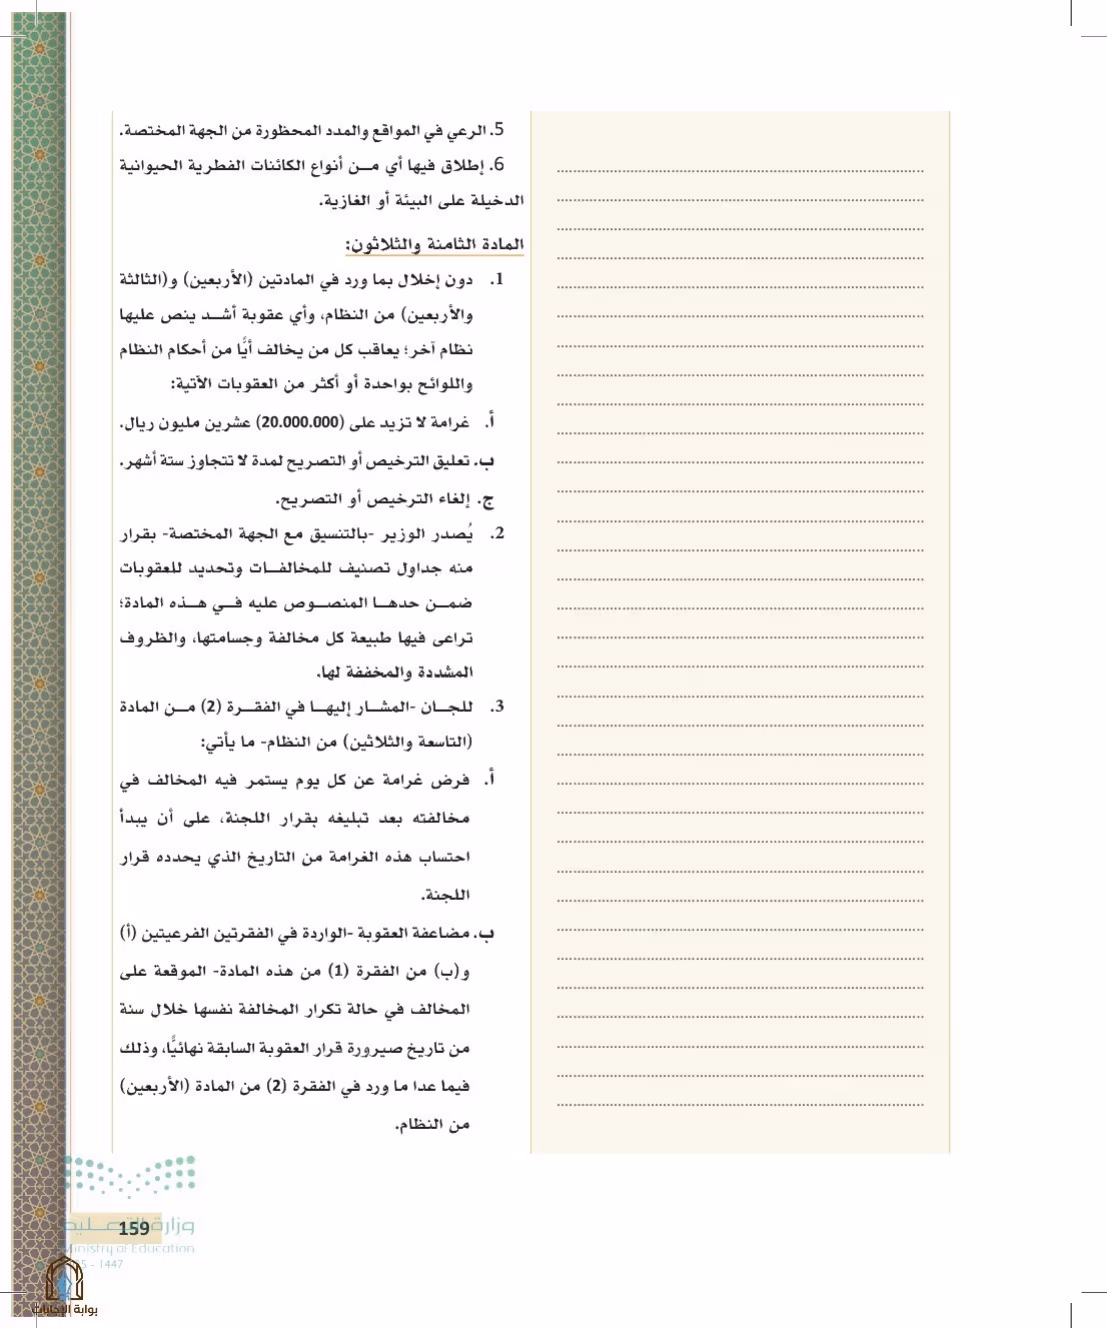 5. الرعي في المواقع والمدد المحظورة من الجهة المختصة.
6. إطلاق فيها أي مــن أنواع الكائنات الفطرية الحيوانية
الدخيلة على البيئة أو الغازية.
المادة الثامنة والثلاثون:
1. دون إخلال بما ورد في المادتين (الأربعين) و(الثالثة
والأربعين) من النظام، وأي عقوبة أشــد ينص عليها
نظام آخر؛ يعاقب كل من يخالف أيًّا من أحكام النظام
واللوائح بواحدة أو أكثر من العقوبات الآتية:
أ. غرامة لا تزيد على (20.000.000) عشرين مليون ريال.
ب. تعليق الترخيص أو التصريح لمدة لا تتجاوز ستة أشهر.
ج. إلغاء الترخيص أو التصريح.
2. يُصدر الوزير -بالتنسيق مع الجهة المختصة- بقرار
منه جداول تصنيف للمخالفــات وتحديد للعقوبات
ضمــن حدهــا المنصــوص عليه فــي هــذه المادة؛
تراعى فيها طبيعة كل مخالفة وجسامتها، والظروف
المشددة والمخففة لها.
3. للجــان -المشــار إليهــا في الفقــرة (2) مــن المادة
(التاسعة والثلاثين) من النظام- ما يأتي:
أ. فرض غرامة عن كل يوم يستمر فيه المخالف في
مخالفته بعد تبليغه بقرار اللجنة، على أن يبدأ
احتساب هذه الغرامة من التاريخ الذي يحدده قرار
اللجنة.
ب. مضاعفة العقوبة -الواردة في الفقرتين الفرعيتين (أ)
و(ب) من الفقرة (1) من هذه المادة- الموقعة على
المخالف في حالة تكرار المخالفة نفسها خلال سنة
من تاريخ صيرورة قرار العقوبة السابقة نهائيًّا، وذلك
فيما عدا ما ورد في الفقرة (2) من المادة (الأربعين)
من النظام.
وزارة التعـليم
159
Ministry of Education
1447
بوابة الإجابات